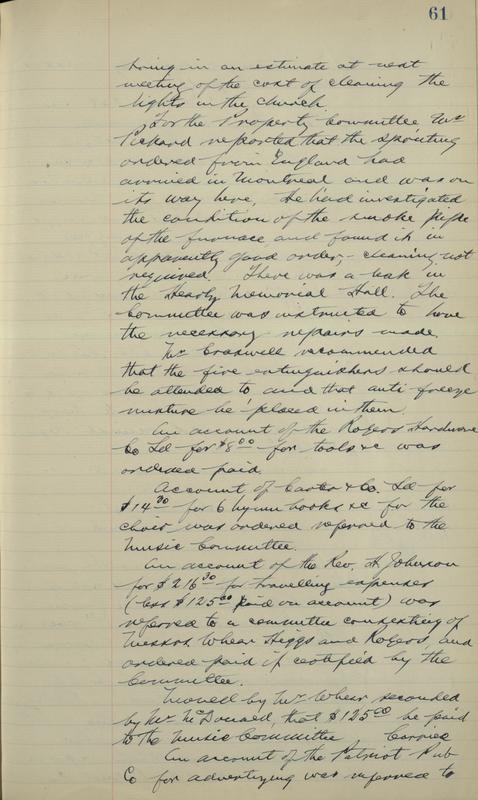 61
bring in an estimate at next
meeting of the cost of cleaning the
lights in the church.
For the Property Committee Mr
Pickard reported that the spouting
ordered from England had
arrived in Montreal and was on
its way here. He had investigated
the condition of the smoke pipe
of the furnace and found it in
apparently good order - cleaning not
required. There was a leak in
the Heartz Memorial Hall. The
Committee was instructed to have
the necessary repairs made.
Mr. Craswell recommended
that the fire extinguishers should
be attended to and that anti-freeze
mixture be placed in them.
An account of the Rogers Hardware
Co Ltd for $8.00 for tools &c was
ordered paid.
Account of Carter & Co. Ltd for
$14.20 for 6 hymn books &c for the
choir was ordered referred to the
Music Committee.
An account of the Rev. H Johnson
for $216.30 for travelling expenses
(less $125.00 paid on account) was
referred to a committee consisting of
Messrs. Whear Higgs and Rogers and
ordered paid if certified by the
Committee.
Moved by Mr Whear seconded
by Mr. McDonald, that $125.00 be paid
to the Music Committee Carried
An account of the Patriot Pub
Co for advertizing was referred to